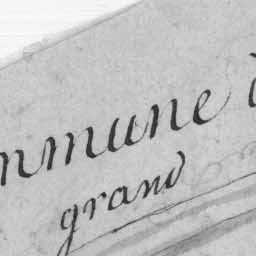 mmune d
grand